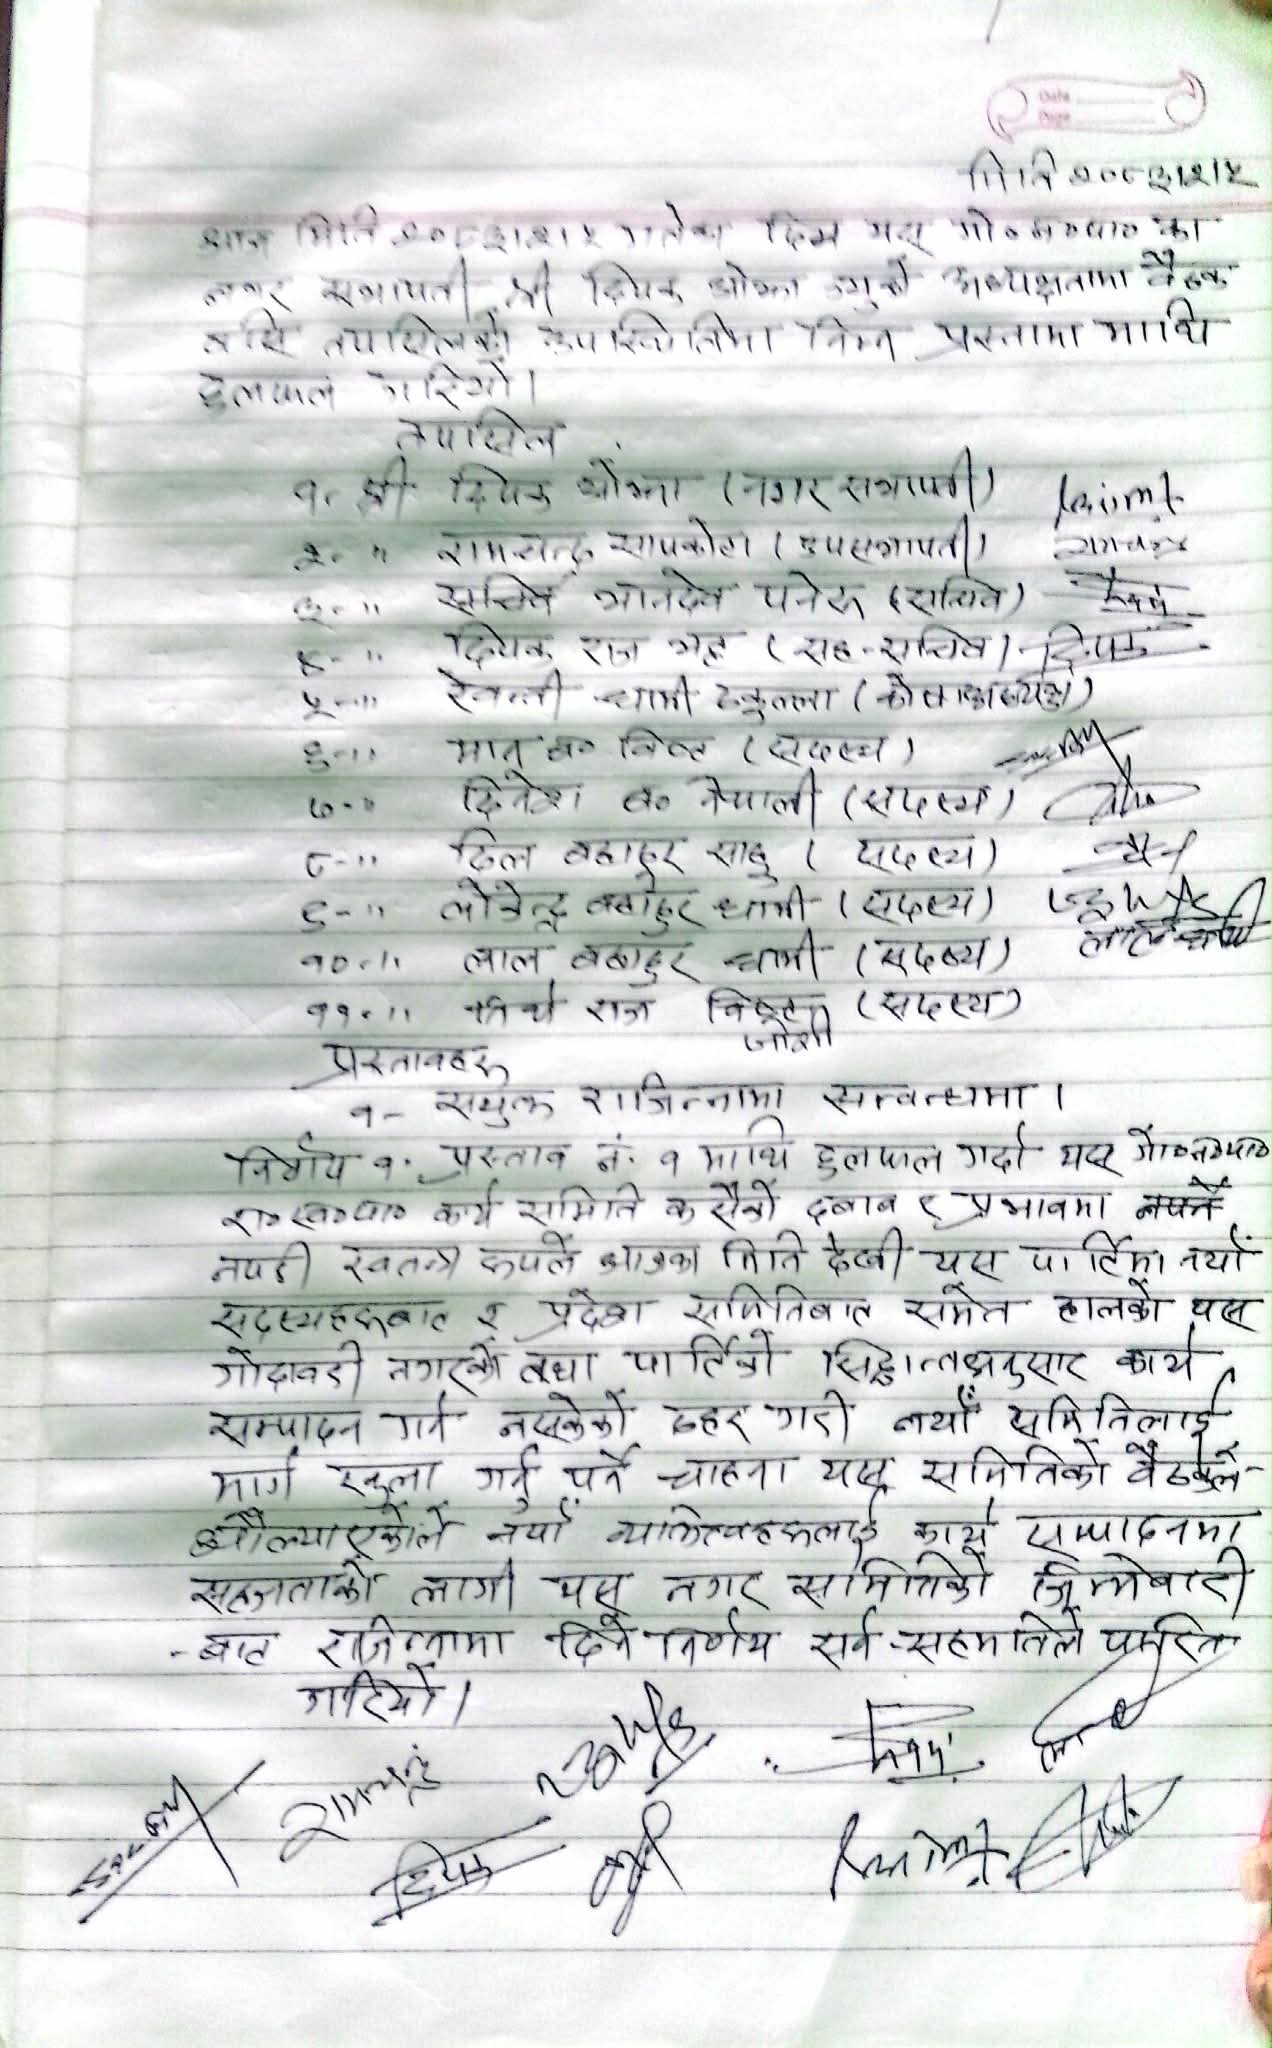 Date
Page
मिति २०८३।१।५
आज मिति २०८३।१।५ गतेका दिन यस गो०न०पा० का
नगर सभापती श्री दिपक ओझा ज्युको अध्यक्षतामा बैठक
बसि तपसिलको उपस्थितिमा निम्न प्रस्तामा माथि
छलफल गरियो।
तपसिल
१. श्री दिपक ओझा (नगर सभापती)
२. " रामचन्द्र सापकोटा (उपसभापती) रामचन्द्र
३. " सचिव भानदेव पनेरु (सचिव)
४. " दिपक राज भट्ट (सह-सचिव) दिपक
५. " रेवन्ती धामी ठकुल्ला (कोषाध्यक्ष)
६. " मान ब० विष्ट (सदस्य)
७. " दिनेश ब० नेपाली (सदस्य)
८. " दिल बहादुर साहु (सदस्य)
९. " लोकेन्द्र बहादुर धामी (सदस्य)
१०. " लाल बहादुर धामी (सदस्य)
११. " राज (सदस्य)
जोशी
प्रस्तावहरु
१- सयुक्त राजिन्नामा सम्वन्धमा।
निर्णय १. प्रस्ताव नं. १ माथि छलफल गर्दा यस गो०न०पा०
रा०स्व०पा० कार्य समिति कसैको दबाब र प्रभावमा
नपरी स्वतन्त्र रुपले आजका मिति देखी यस पार्टिमा नयाँ
सदस्यहरुबाट र प्रदेश समितिबाट समेत हालको यस
गोदावरी नगरको तथा पार्टिको सिद्धान्तअनुसार कार्य
सम्पादन गर्न नसकेको ठहर गरी नयाँ समितिलाई
मार्ग खुला गर्नु पर्ने चाहना यस समितिको बैठकले
औल्याएकोले नयाँ व्यक्तित्वहरुलाई कार्य सम्पादनमा
सहजताको लागी यस नगर समितिको जिम्मेबारी
-बाट राजिन्नामा दिने निर्णय सर्व-सहमतिले पारित
गरियो।
रामचन्द्र
दिपक